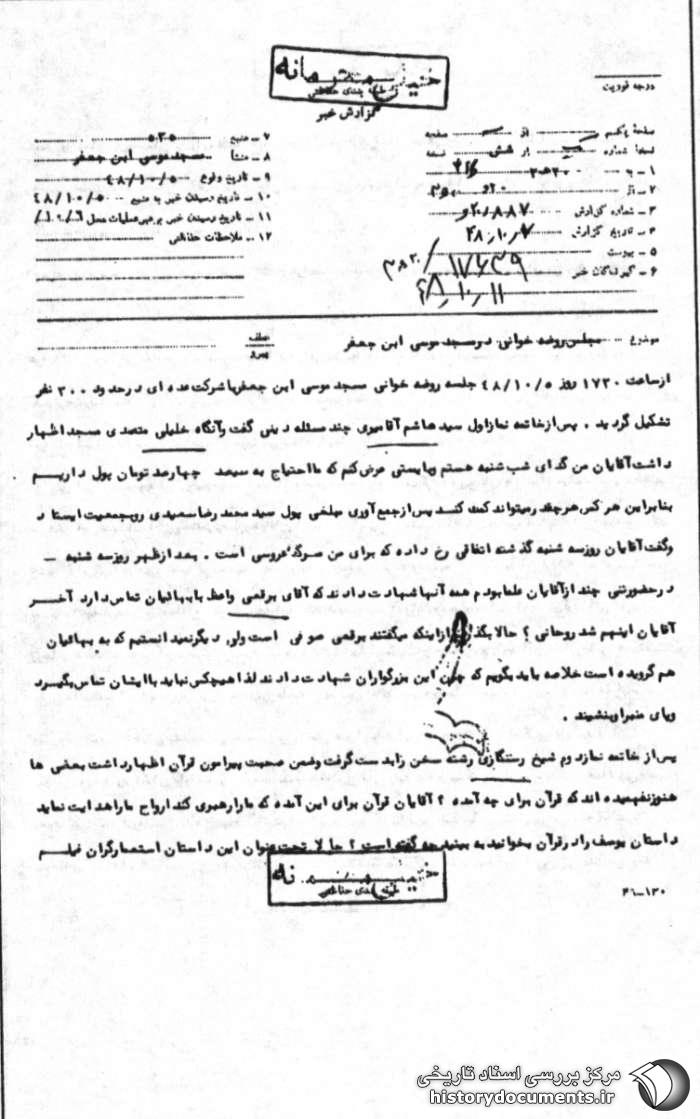 خیلی محرمانه
طبقه بندی حفاظتی
گزارش خبر
درجه فوریت
صفحه یکم از صفحه
نسخه شماره از شش نسخه
۱ - به ۳۱۲
۲ - از ۲۰
۳ - شماره گزارش
۴ - تاریخ گزارش ۴۸/۱۰/۷
۵ - پیوست
۶ - گیرندگان خبر
۷ - منبع ۵۳۵
۸ - منشأ مسجد موسی ابن جعفر
۹ - تاریخ وقوع ۴۸/۱۰/۵
۱۰ - تاریخ رسیدن خبر به منبع ۴۸/۱۰/۵
۱۱ - تاریخ رسیدن خبر به رهبر عملیات محل
۱۲ - ملاحظات حفاظتی
۱۷۶۳۹
۴۸/۱۰/۱۱
موضوع مجلس روضه خوانی در مسجد موسی ابن جعفر
عطف
پیرو
از ساعت ۱۷۳۰ روز ۴۸/۱۰/۵ جلسه روضه خوانی مسجد موسی ابن جعفر با شرکت عده ای در حدود ۳۰۰ نفر
تشکیل گردید . پس از خاتمه نماز اول سید هاشم آقامیری چند مسئله دینی گفت وآنگاه خلیلی متصدی مسجد اظهار
داشت آقایان من گدای شب شنبه هستم وبایستی عرض کنم که ما احتیاج به سیصد چهارصد تومان پول داریم
بنابراین هر کس هر چقدر میتواند کمک کند پس از جمع آوری مبلغی پول سید محمد رضا سعیدی روبجمعیت ایستاد
وگفت آقایان روز سه شنبه گذشته اتفاقی رخ داده که برای من عروسی است . بعد از ظهر روز سه شنبه -
در حضور تنی چند از آقایان علما بودم همه آنها شهادت دادند که آقای برقعی واعظ با بهائیان تماس دارد آخر
آقایان اینهم شد روحانی ؟ حالا بگذریم از اینکه میگفتند برقعی صوفی است ولی دیگر نمیدانستیم که به بهائیان
هم گرویده است خلاصه باید بگویم که چون این بزرگواران شهادت دادند لذا هیچکس نباید با ایشان تماس بگیرد
وپای منبر او بنشیند .
پس از خاتمه نماز دوم شیخ رستگاری رشته سخن را بدست گرفت وضمن صحبت پیرامون قرآن اظهار داشت بعضی ها
هنوز نفهمیده اند که قرآن برای چه آمده ؟ آقایان قرآن برای این آمده که ما را رهبری کند ارواح ما را هدایت نماید
داستان یوسف را در قرآن بخوانید به بینید چه گفته است ؟ حالا تحت عنوان این داستان استعمارگران فیلم
خیلی محرمانه
طبقه بندی حفاظتی
۴۶-۱۳۰
مرکز بررسی اسناد تاریخی
historydocuments.ir